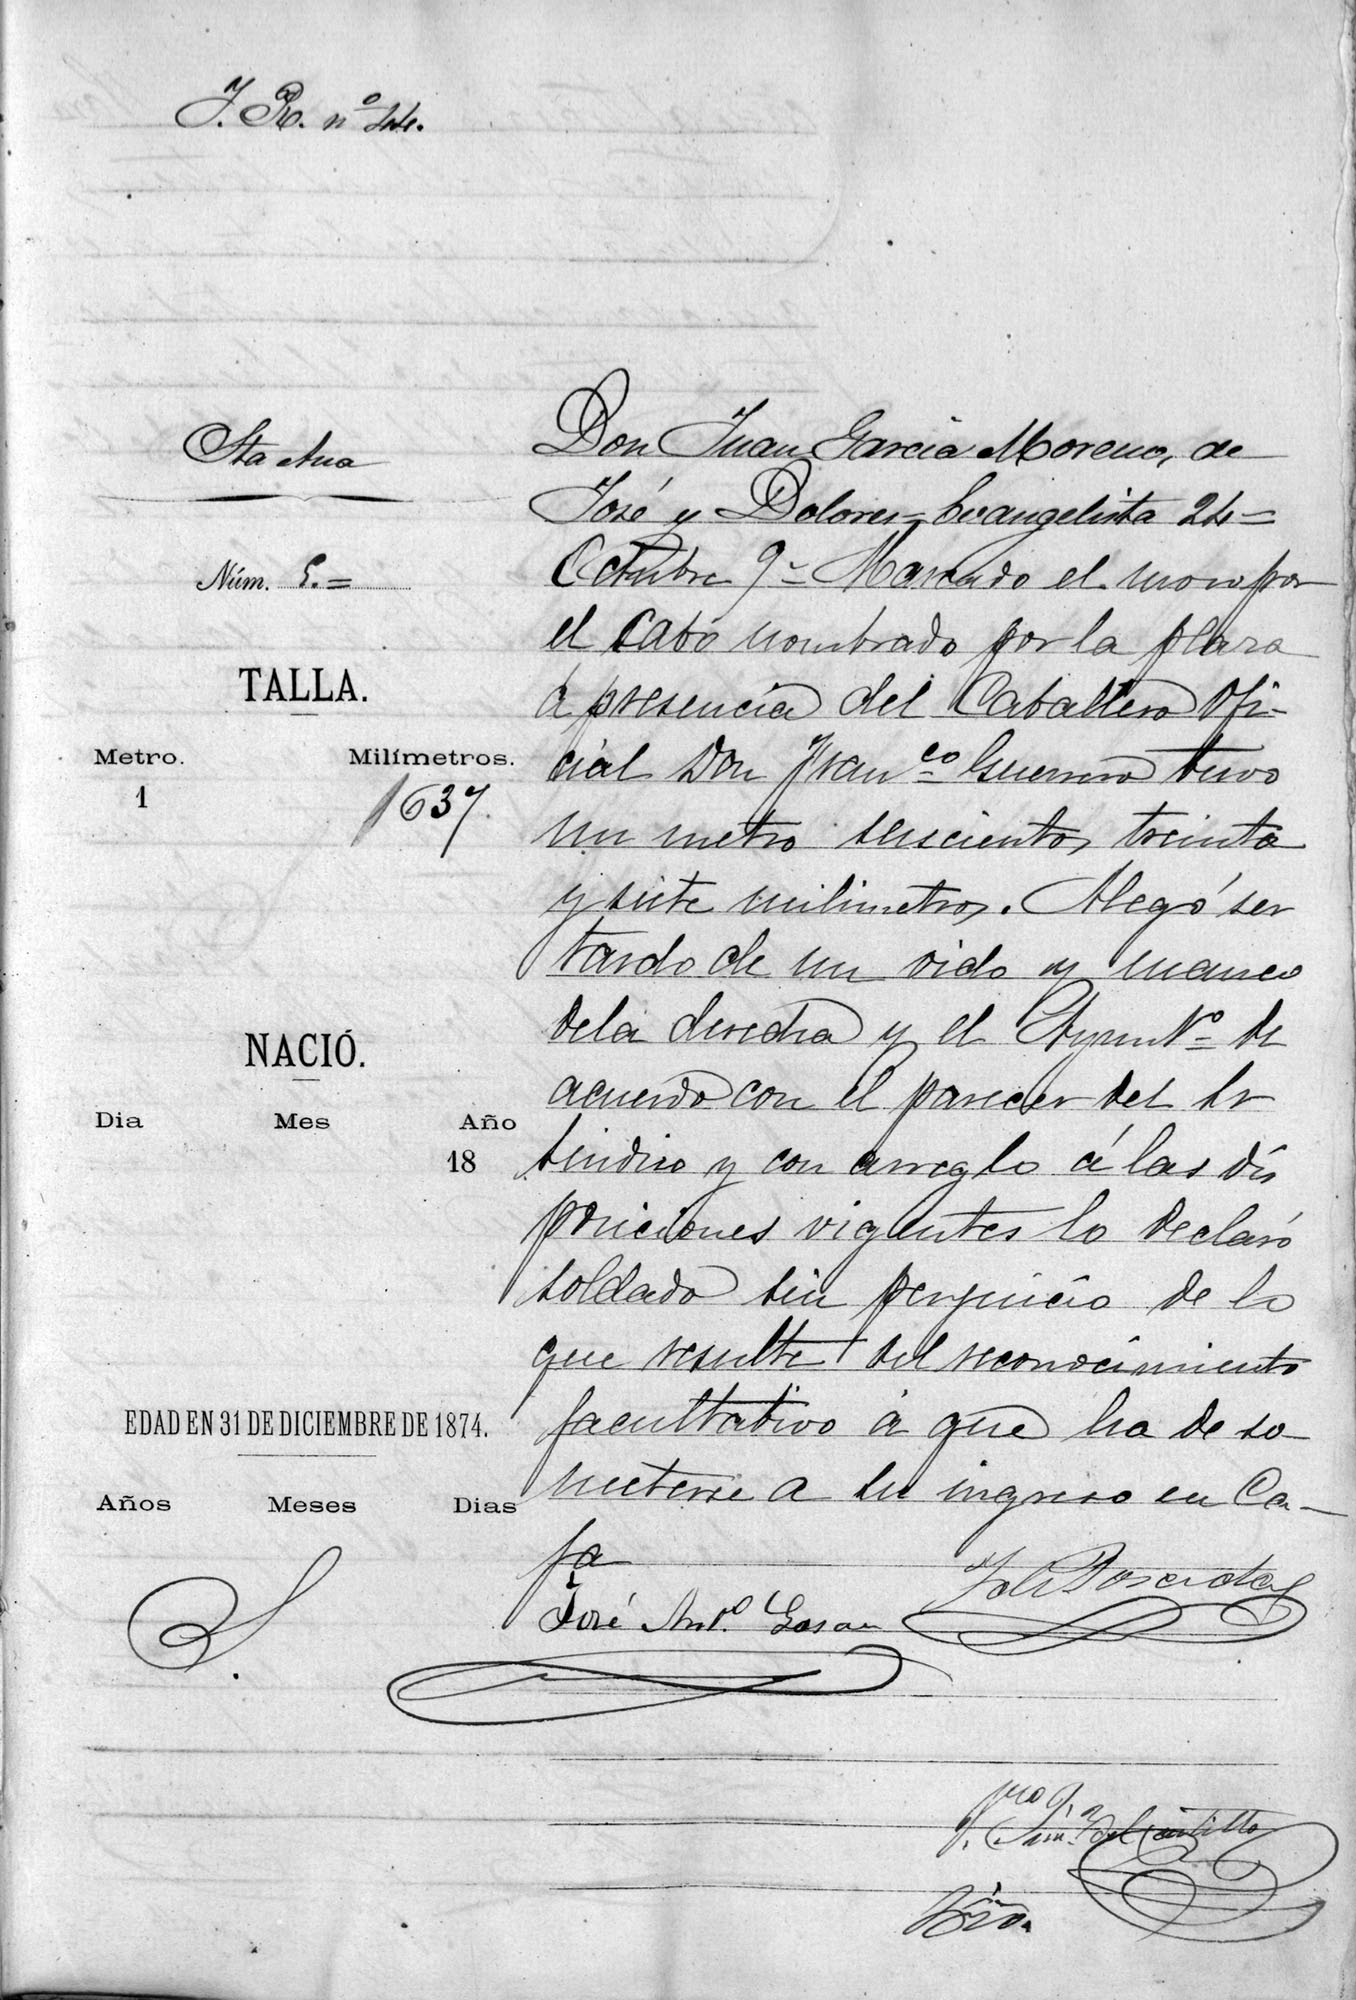 J. R. nº 44.
Sta Ana
Núm. 5. =
TALLA.
Metro. Milímetros.
1 1637.
NACIÓ.
Dia Mes Año
18
EDAD EN 31 DE DICIEMBRE DE 1874.
Años Meses Dias
S.
Don Juan Garcia Moreno, de
José y Dolores = Evangelista 24 =
Octubre 9 = Marcado el mozo por
el cabo nombrado por la plaza
á presencia del Caballero Ofi-
cial Don Fran.co Guerrero tuvo
un metro seiscientos treinta
y siete milimetros. Alegó ser
tardo de un oido y manco
de la derecha y el Ayunt.o de
acuerdo con el parecer del Sr
Sindico y con arreglo á las dis
posiciones vigentes lo declaró
soldado sin perjuicio de lo
que resulte del reconocimiento
facultativo á que ha de so-
meterse a su ingreso en Ca-
ja
José Ant.o
del Castillo